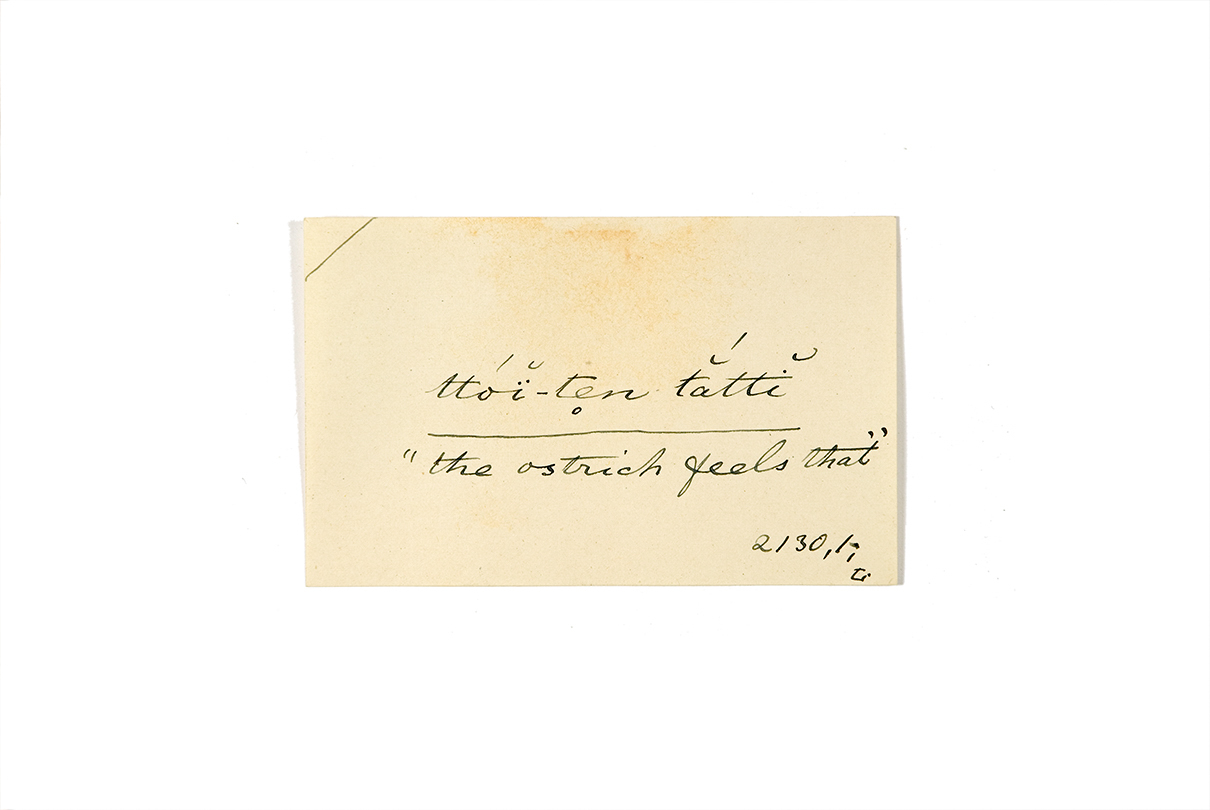 ttóĭ-ten̥ tắttĭ
"the ostrich feels that"
2130, 1,